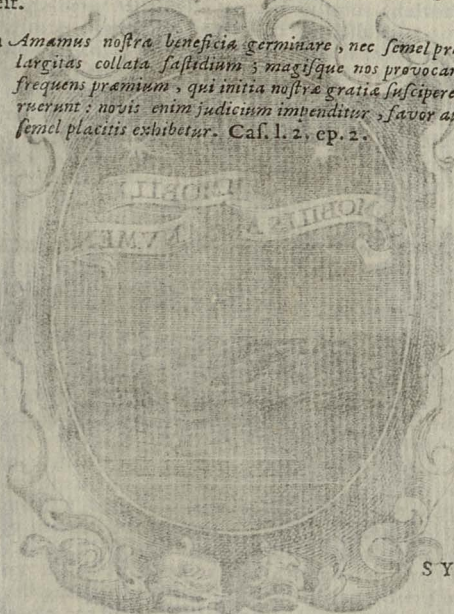 cit.
Amamus nostra beneficia germinare, nec semel præ
largitas collata fastidium; magisque nos provocan
frequens præmium, qui initia nostræ gratiæ suscipere
ruerunt: novis enim judicium impenditur, favor a
semel placitis exhibetur. Cas. l. 2. ep. 2.
IMMOBILE
MOBILIS
NVMEN
SY